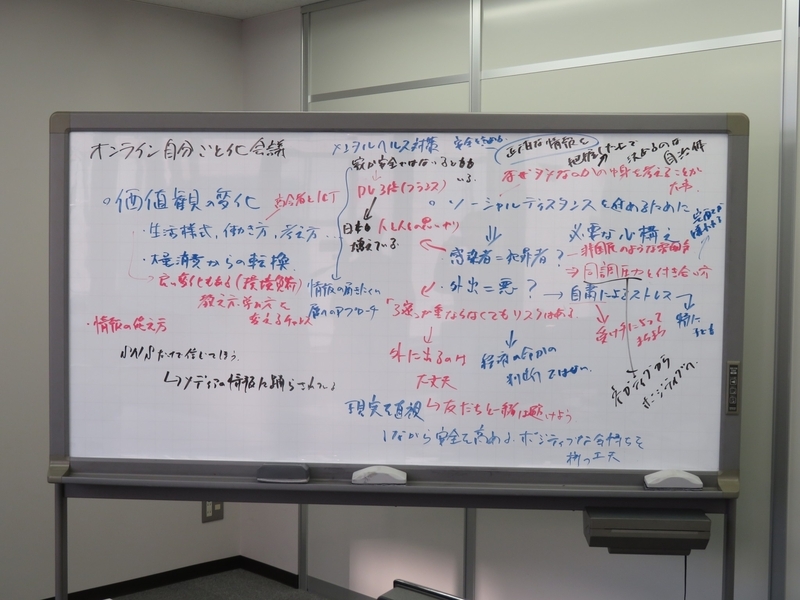 オンライン自分ごと化会議
○価値観の変化
高齢者とICT
・生活様式、働き方、考え方…
・大量消費からの転換
良い変化もある(環境負荷)
教え方、学び方を
変えるチャンス
・情報の使え方
SNSだけで信じてしまう
↳メディアの情報に踊らされている
メンタルヘルス対策
家が安全ではない子どもも
いる
DV3倍(フランス)
日本も
増えている
人と人との思いやり
情報の届きにくい
層へのアプローチ
安全を高める
正確な情報を
把握した上で
決めるのは
自治体
なぜダメなのかの中身を考えることが
大事
○ソーシャルディスタンスを進めるために
必要な心構え
・感染者=犯罪者?
非国民のような雰囲気
⇒同調圧力との付き合い方
・外出=悪?
→自粛によるストレス
「3密」が重ならなくてもリスクはある
外に出るのは
大丈夫
↳友だちと一緒は避けよう
行政のからの
判断ではない
受け手によって
まちまち
特に
子ども
ネガティブから
ポジティブへ
現実を直視
しながら安全を高める、ポジティブな気持ちを
持つ工夫